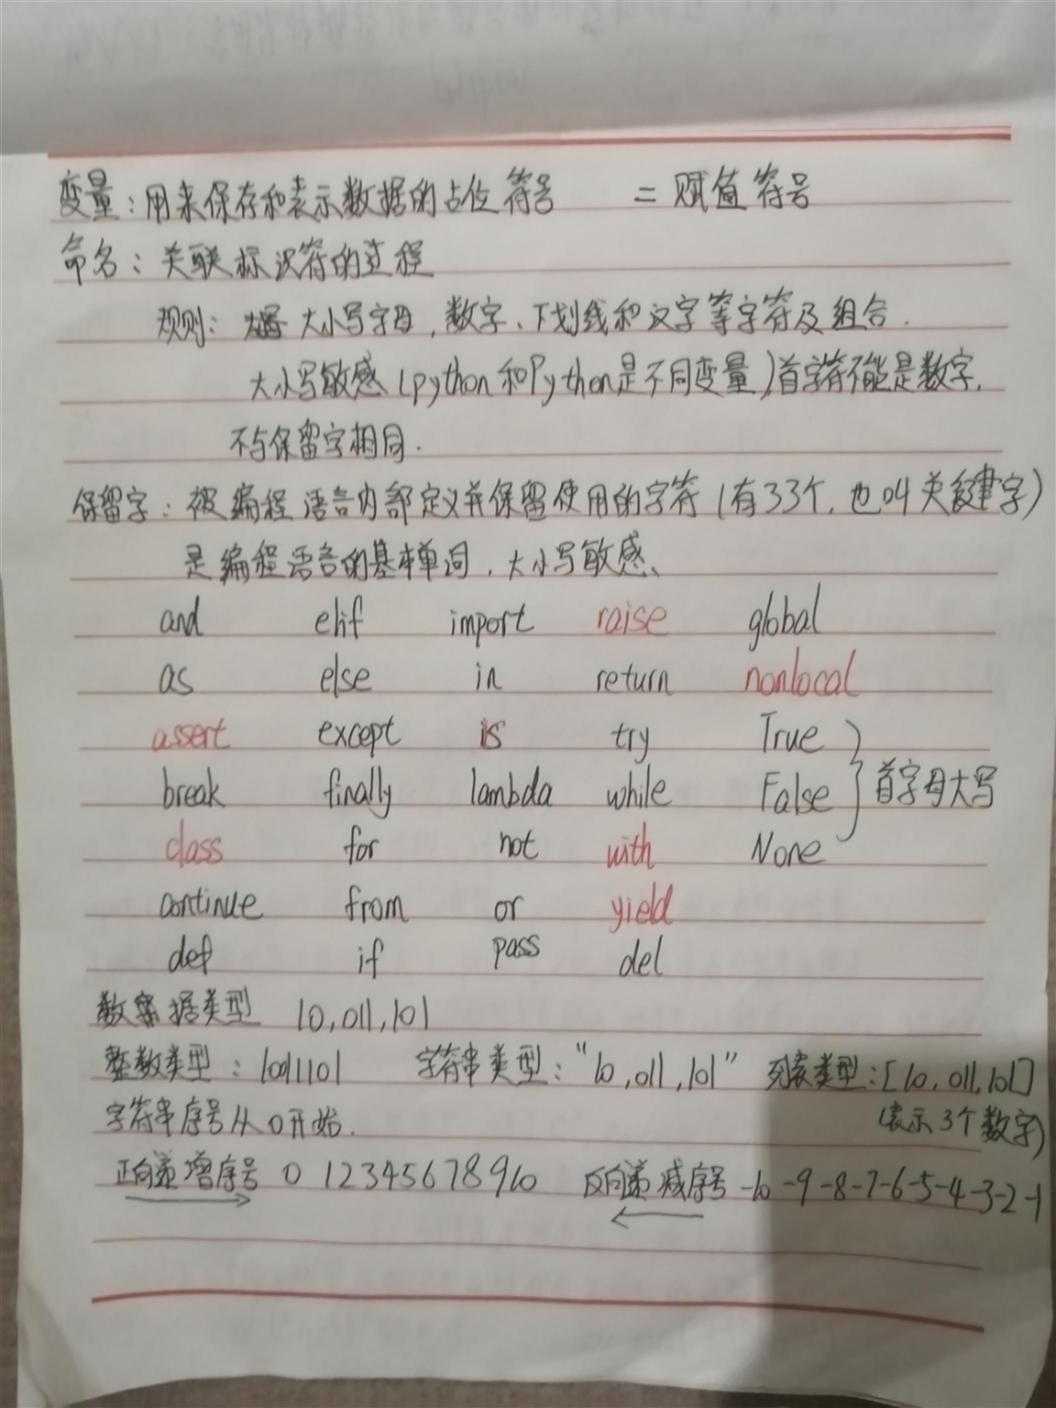 变量：用来保存和表示数据的占位符号 = 赋值符号
命名：关联标识符的过程
规则： 大小写字母，数字、下划线和汉字等字符及组合．
大小写敏感(python和Python是不同变量)首字符不能是数字．
不与保留字相同．
保留字：被编程语言内部定义并保留使用的字符(有33个，也叫关键字)
是编程语言的基本单词，大小写敏感、
and elif import raise global
as else in return nonlocal
assert except is try True
break finally lambda while False 首字母大写
class for not with None
continue from or yield
def if pass del
数据类型 10,011,101
整数类型：10011101 字符串类型："10,011,101" 列表类型：[10,011,101]
字符串序号从0开始． (表示3个数字)
正向递增序号 0 1 2 3 4 5 6 7 8 9 10 反向递减序号 -10 -9 -8 -7 -6 -5 -4 -3 -2 -1